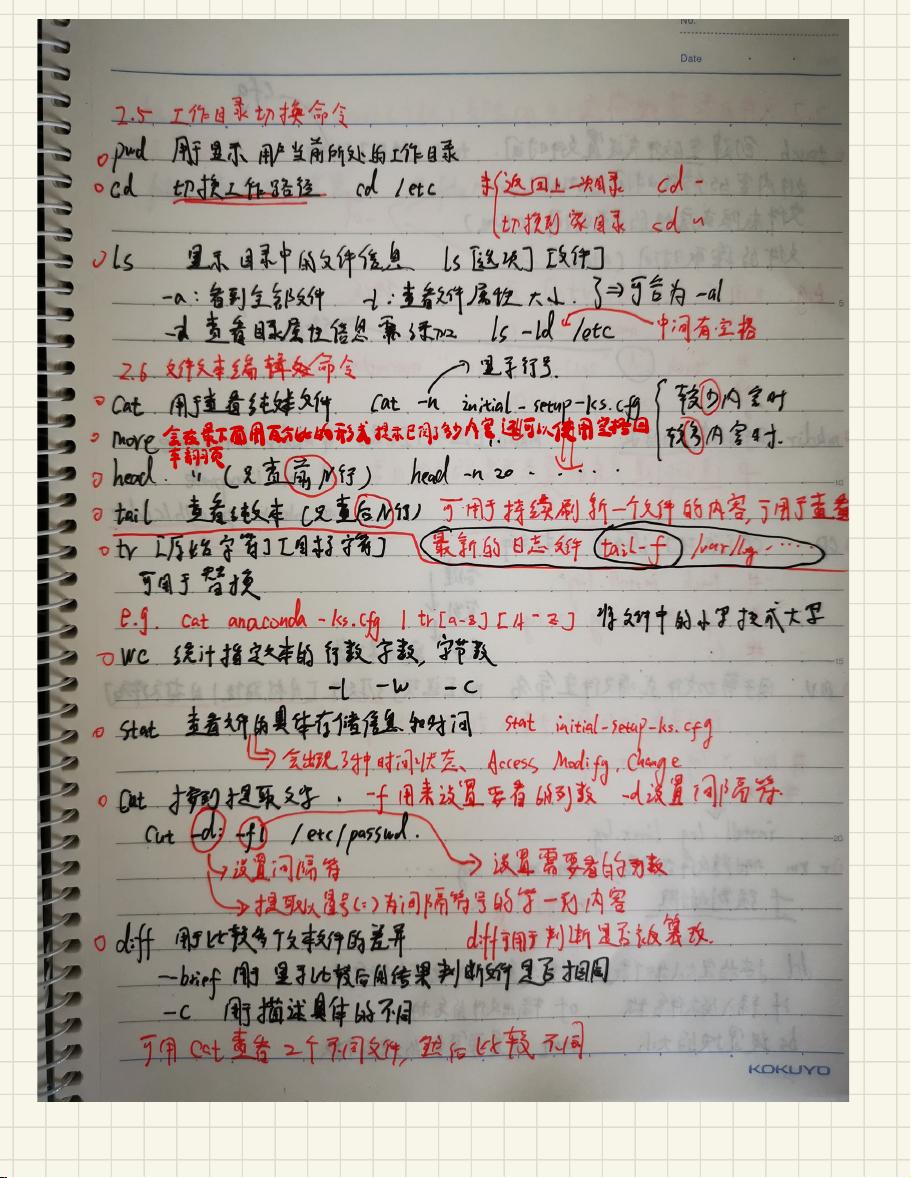 No.
Date
2.5 工作目录切换命令
pwd 用于显示 用户当前所处的工作目录
cd 切换工作路径 cd /etc 返回上一次目录 cd -
切换到家目录 cd ~
ls 显示目录中的文件信息 ls [选项] [文件]
-a：看到全部文件 -l：查看文件属性 大小. } ⇒ 可合为 -al
-d 查看目录属性信息 ls -ld /etc 中间有空格
2.6 文件文本编辑命令
显示行号.
cat 用于查看纯文本文件 cat -n initial-setup-ks.cfg 较少内容时
more 会在最下面用百分比的形式提示已阅了多少内容 还可以使用空格回 较多内容时.
车翻页
head. 〃 (只查前N行) head -n 20 ·····
tail 查看纯文本 (只查后N行) 可用于持续刷新一个文件的内容, 可用于查看
tr [原始字符] [目标字符] 最新的日志文件 tail-f /var/log ·····
可用于替换
e.g. cat anaconda-ks.cfg | tr [a-z] [A-Z] 将文件中的小写换成大写
wc 统计指定文本的行数 字数, 字节数
-l -w -c
stat 查看文件的具体存储信息和时间 stat initial-setup-ks.cfg
会出现3种时间状态、Access Modify, Change
cut 按列提取文字. -f 用来设置要看的列数 -d 设置间隔符.
cut -d: -f1 /etc/passwd.
设置间隔符 设置需要看的列数
提取以冒号(:)为间隔符号的第一列内容
diff 用于比较多个文本文件的差异 diff可用于判断是否被篡改.
--brief 用于显示比较后的结果 判断文件是否相同
-c 用于描述具体的不同
可用 cat 查看 2个不同文件, 然后比较不同
KOKUYO